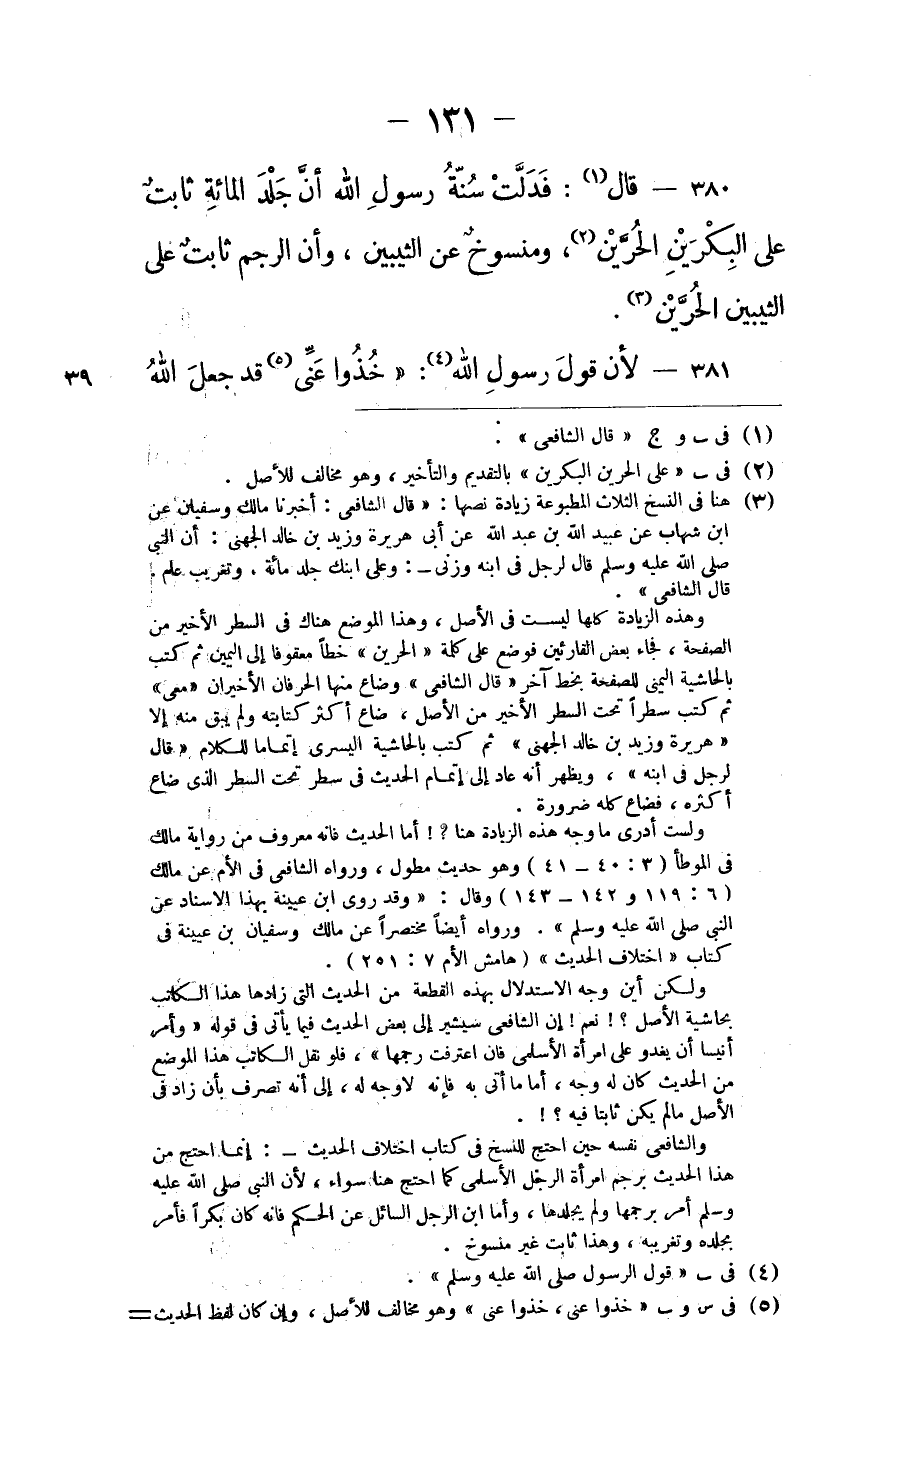 — ١٣١ —
٣٨٠ — قال(١) : فَدَلَّتْ سُنَّةُ رسولِ الله أنَّ جَلْدَ المائةِ ثابتٌ
على البِكْرَيْنِ الحُرَّيْنِ(٢)، ومنسوخٌ عن الثيبين ، وأن الرجم ثابتٌ على
الثيبين الحُرَّيْنِ(٣) .
٣٨١ — لأن قولَ رسولِ الله(٤): « خُذُوا عَنِّي(٥) قد جعلَ اللهُ ٣٩
(١) فى ب و ج « قال الشافعى » .
(٢) فى ب « على الحرين البكرين » بالتقديم والتأخير ، وهو مخالف للأصل .
(٣) هنا فى النسخ الثلاث المطبوعة زيادة نصها : « قال الشافعى : أخبرنا مالك وسفيان عن
ابن شهاب عن عبيد الله بن عبد الله عن أبى هريرة وزيد بن خالد الجهنى : أن النبى
صلى الله عليه وسلم قال لرجل فى ابنه وزنى ـ : وعلى ابنك جلد مائة ، وتغريب عام .
قال الشافعى » .
وهذه الزيادة كلها ليست فى الأصل ، وهذا الموضع هناك فى السطر الأخير من
الصفحة ، فجاء بعض القارئين فوضع على كلمة « الحرين » خطاً معقوفا إلى اليمين ثم كتب
بالحاشية اليمنى للصفحة بخط آخر « قال الشافعى » وضاع منها الحرفان الأخيران «معى»
ثم كتب سطراً تحت السطر الأخير من الأصل ، ضاع أكثر كتابته ولم يبق منه إلا
« هريرة وزيد بن خالد الجهنى » ثم كتب بالحاشية اليسرى إتماما للكلام « قال
لرجل فى ابنه » ، ويظهر أنه عاد إلى إتمام الحديث فى سطر تحت السطر الذى ضاع
أكثره ، فضاع كله ضرورة .
ولست أدرى ما وجه هذه الزيادة هنا ؟! أما الحديث فانه معروف من رواية مالك
فى الموطأ ( ٣ : ٤٠ ـ ٤١ ) وهو حديث مطول ، ورواه الشافعى فى الأم عن مالك
( ٦ : ١١٩ و ١٤٢ ـ ١٤٣ ) وقال : « وقد روى ابن عيينة بهذا الاسناد عن
النبى صلى الله عليه وسلم » . ورواه أيضاً مختصراً عن مالك وسفيان بن عيينة فى
كتاب « اختلاف الحديث » ( هامش الأم ٧ : ٢٥١ ) .
ولكن أين وجه الاستدلال بهذه القطعة من الحديث التى زادها هذا الكاتب
بحاشية الأصل ؟! نعم ! إن الشافعى سيشير إلى بعض الحديث فيما يأتى فى قوله « وأمر
أنيسا أن يغدو على امرأة الأسلمى فان اعترفت رجمها » ، فلو نقل الكاتب هذا الموضع
من الحديث كان له وجه ، أما ما أتى به فإنه لاوجه له ، إلى أنه تصرف بأن زاد فى
الأصل مالم يكن ثابتا فيه ؟! .
والشافعى نفسه حين احتج للنسخ فى كتاب اختلاف الحديث ـ : إنما احتج من
هذا الحديث برجم امرأة الرجل الأسلمى كما احتج هنا سواء ، لأن النبى صلى الله عليه
وسلم أمر برجمها ولم يجلدها ، وأما ابن الرجل السائل عن الحكم فانه كان بكراً فأمر
بجلده وتغريبه ، وهذا ثابت غير منسوخ .
(٤) فى ب « قول الرسول صلى الله عليه وسلم » .
(٥) فى س و ب « خذوا عنى ، خذوا عنى » وهو مخالف للأصل ، وإن كان لفظ الحديث =